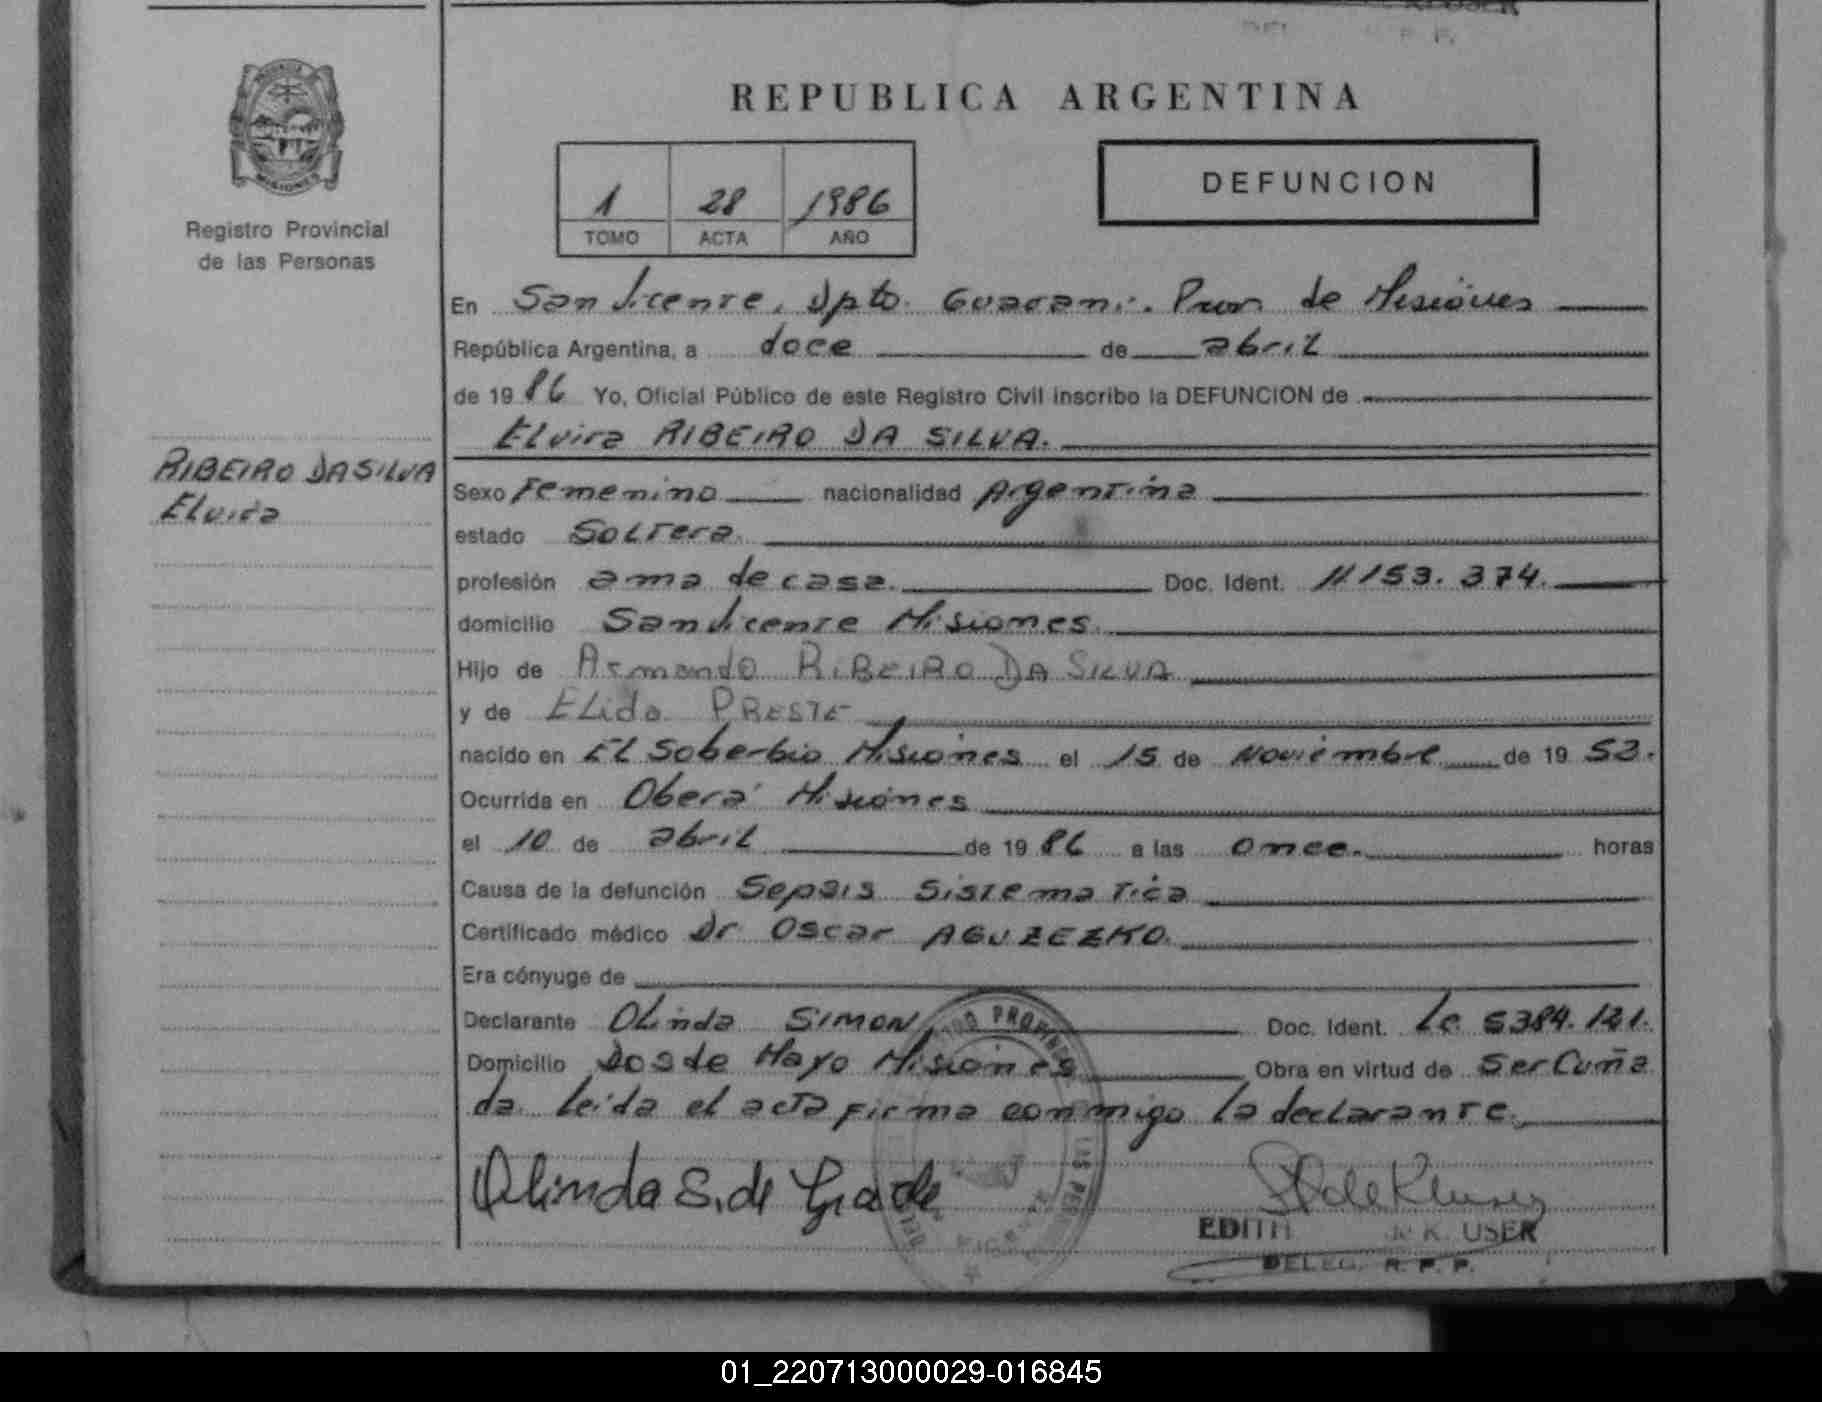 REPUBLICA ARGENTINA
1 28 1986
TOMO ACTA AÑO
DEFUNCION
PROVINCIA
MISIONES
Registro Provincial
de las Personas
RIBEIRO DA SILVA
Elvira
En San Vicente, Dpto. Guarani. Prov de Misiones
República Argentina, a doce de abril
de 1986 Yo, Oficial Público de este Registro Civil inscribo la DEFUNCION de
Elvira RIBEIRO DA SILVA.
Sexo Femenino nacionalidad Argentina
estado Soltera.
profesión ama de casa. Doc. Ident. 11.153.374.
domicilio San Vicente Misiones.
Hijo de Armando RIBEIRO DA SILVA
y de Elida PRESTE
nacido en El Soberbio Misiones el 15 de Noviembre de 1953.
Ocurrida en Oberá Misiones
el 10 de abril de 1986 a las once. horas
Causa de la defunción Sepsis Sistematica
Certificado médico Dr Oscar
Era cónyuge de
Declarante Olinda SIMON, Doc. Ident. Lc 5384.121.
Domicilio Dos de Mayo Misiones Obra en virtud de Ser Cuña
da. leida el acta firma conmigo la declarante.
Olinda S. de
EDITH de K. USER
DELEG. R. P. P.
01_220713000029-016845